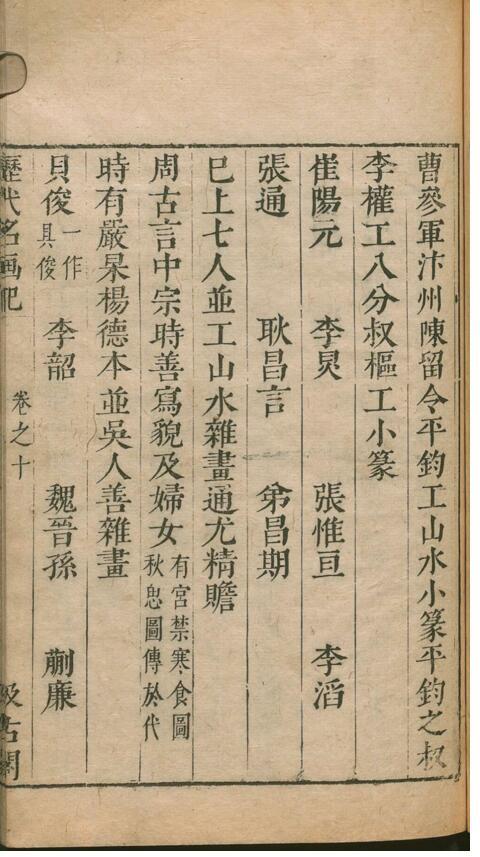 曹參軍汴州陳留令平鈞工山水小篆平鈞之叔
李權工八分叔樞工小篆
崔陽元 李炅 張惟亘 李滔
張通 耿昌言 弟昌期
巳上七人並工山水雜畫通尤精贍
周古言中宗時善寫貌及婦女有宮禁寒食圖秋思圖傳於代
時有嚴杲楊德本並吳人善雜畫
貝俊一作具俊 李韶 魏晉孫 蒯廉
歷代名画記 卷之十 汲古閣